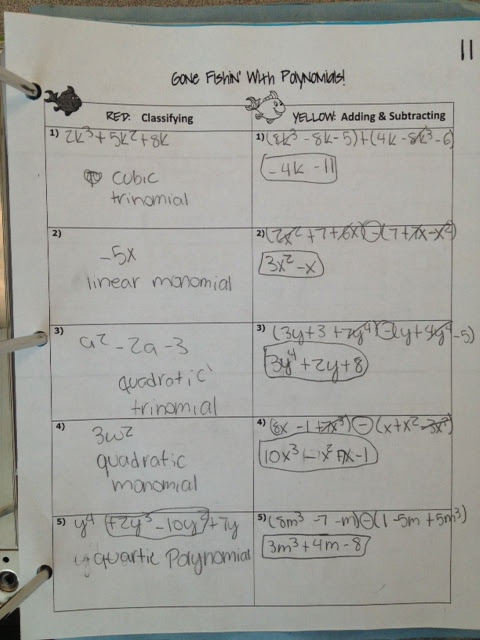 11
Gone Fishin' With Polynomials!
RED: Classifying
YELLOW: Adding & Subtracting
1) 2k³ + 5k² + 8k
cubic
trinomial
1) (8k³ - 8k - 5) + (4k - 8k³ - 6)
- 4k - 11
2)
-5x
linear monomial
2) (2x² + 7 + 6x) - (7 + 7x - x²)
3x² - x
3) a² - 2a - 3
quadratic
trinomial
3) (3y + 3 + 7y⁴) - (y + 4y⁴ - 5)
3y⁴ + 2y + 8
4)
3w²
quadratic
monomial
4) (8x - 1 + 7x³) - (x + x² - 3x³)
10x³ - x² + 7x - 1
5) y⁴ + 2y³ - 10y² + 7y
quartic Polynomial
5) (8m³ - 7 - m) - (1 - 5m + 5m³)
3m³ + 4m - 8